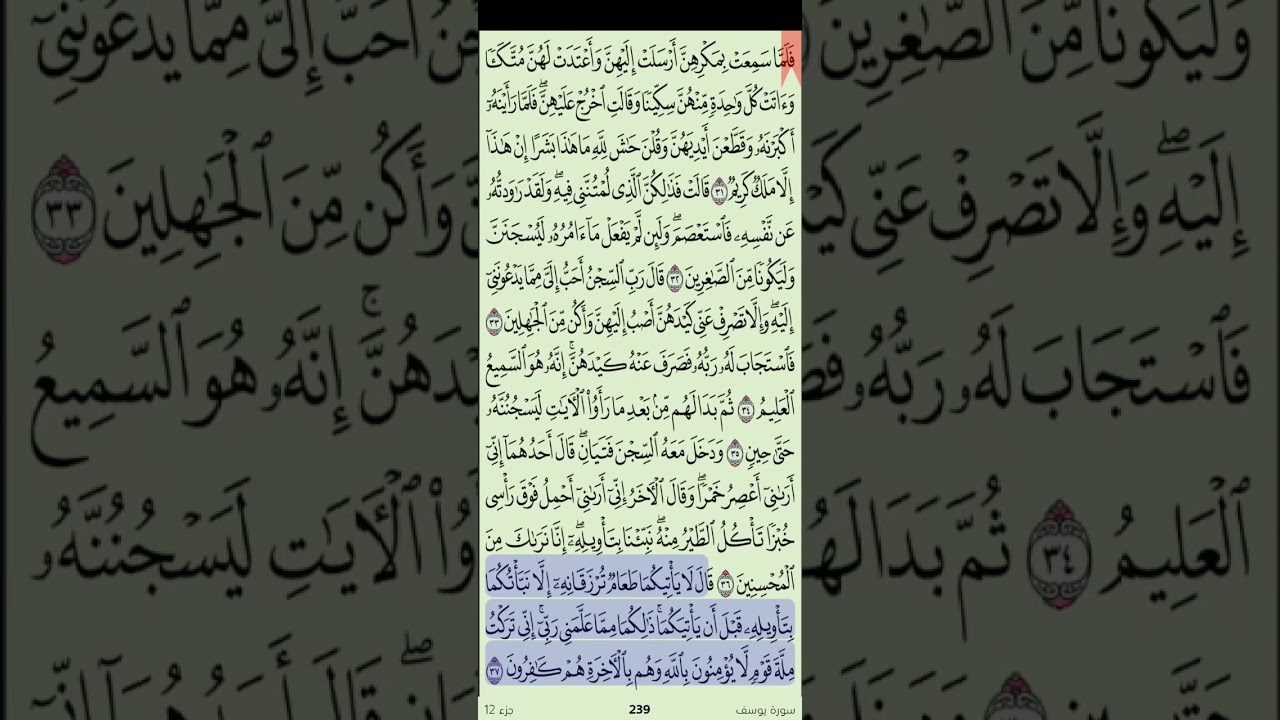 فَلَمَّا سَمِعَتْ بِمَكْرِهِنَّ أَرْسَلَتْ إِلَيْهِنَّ وَأَعْتَدَتْ لَهُنَّ مُتَّكَـًٔا
وَءَاتَتْ كُلَّ وَٰحِدَةٍ مِّنْهُنَّ سِكِّينًا وَقَالَتِ ٱخْرُجْ عَلَيْهِنَّ ۖ فَلَمَّا رَأَيْنَهُۥٓ
أَكْبَرْنَهُۥ وَقَطَّعْنَ أَيْدِيَهُنَّ وَقُلْنَ حَٰشَ لِلَّهِ مَا هَٰذَا بَشَرًا إِنْ هَٰذَآ
إِلَّا مَلَكٌ كَرِيمٌ ٣١ قَالَتْ فَذَٰلِكُنَّ ٱلَّذِى لُمْتُنَّنِى فِيهِ ۖ وَلَقَدْ رَٰوَدتُّهُۥ
عَن نَّفْسِهِۦ فَٱسْتَعْصَمَ ۖ وَلَئِن لَّمْ يَفْعَلْ مَآ ءَامُرُهُۥ لَيُسْجَنَنَّ
وَلَيَكُونًا مِّنَ ٱلصَّٰغِرِينَ ٣٢ قَالَ رَبِّ ٱلسِّجْنُ أَحَبُّ إِلَىَّ مِمَّا يَدْعُونَنِىٓ
إِلَيْهِ ۖ وَإِلَّا تَصْرِفْ عَنِّى كَيْدَهُنَّ أَصْبُ إِلَيْهِنَّ وَأَكُن مِّنَ ٱلْجَٰهِلِينَ ٣٣
فَٱسْتَجَابَ لَهُۥ رَبُّهُۥ فَصَرَفَ عَنْهُ كَيْدَهُنَّ ۚ إِنَّهُۥ هُوَ ٱلسَّمِيعُ
ٱلْعَلِيمُ ٣٤ ثُمَّ بَدَا لَهُم مِّنۢ بَعْدِ مَا رَأَوُا۟ ٱلْءَايَٰتِ لَيَسْجُنُنَّهُۥ
حَتَّىٰ حِينٍ ٣٥ وَدَخَلَ مَعَهُ ٱلسِّجْنَ فَتَيَانِ ۖ قَالَ أَحَدُهُمَآ إِنِّىٓ
أَرَىٰنِىٓ أَعْصِرُ خَمْرًا ۖ وَقَالَ ٱلْءَاخَرُ إِنِّىٓ أَرَىٰنِىٓ أَحْمِلُ فَوْقَ رَأْسِى
خُبْزًا تَأْكُلُ ٱلطَّيْرُ مِنْهُ ۖ نَبِّئْنَا بِتَأْوِيلِهِۦٓ ۖ إِنَّا نَرَىٰكَ مِنَ
ٱلْمُحْسِنِينَ ٣٦ قَالَ لَا يَأْتِيكُمَا طَعَامٌ تُرْزَقَانِهِۦٓ إِلَّا نَبَّأْتُكُمَا
بِتَأْوِيلِهِۦ قَبْلَ أَن يَأْتِيَكُمَا ۚ ذَٰلِكُمَا مِمَّا عَلَّمَنِى رَبِّىٓ ۚ إِنِّى تَرَكْتُ
مِلَّةَ قَوْمٍ لَّا يُؤْمِنُونَ بِٱللَّهِ وَهُم بِٱلْءَاخِرَةِ هُمْ كَٰفِرُونَ ٣٧
سورة يوسف 239 جزء 12